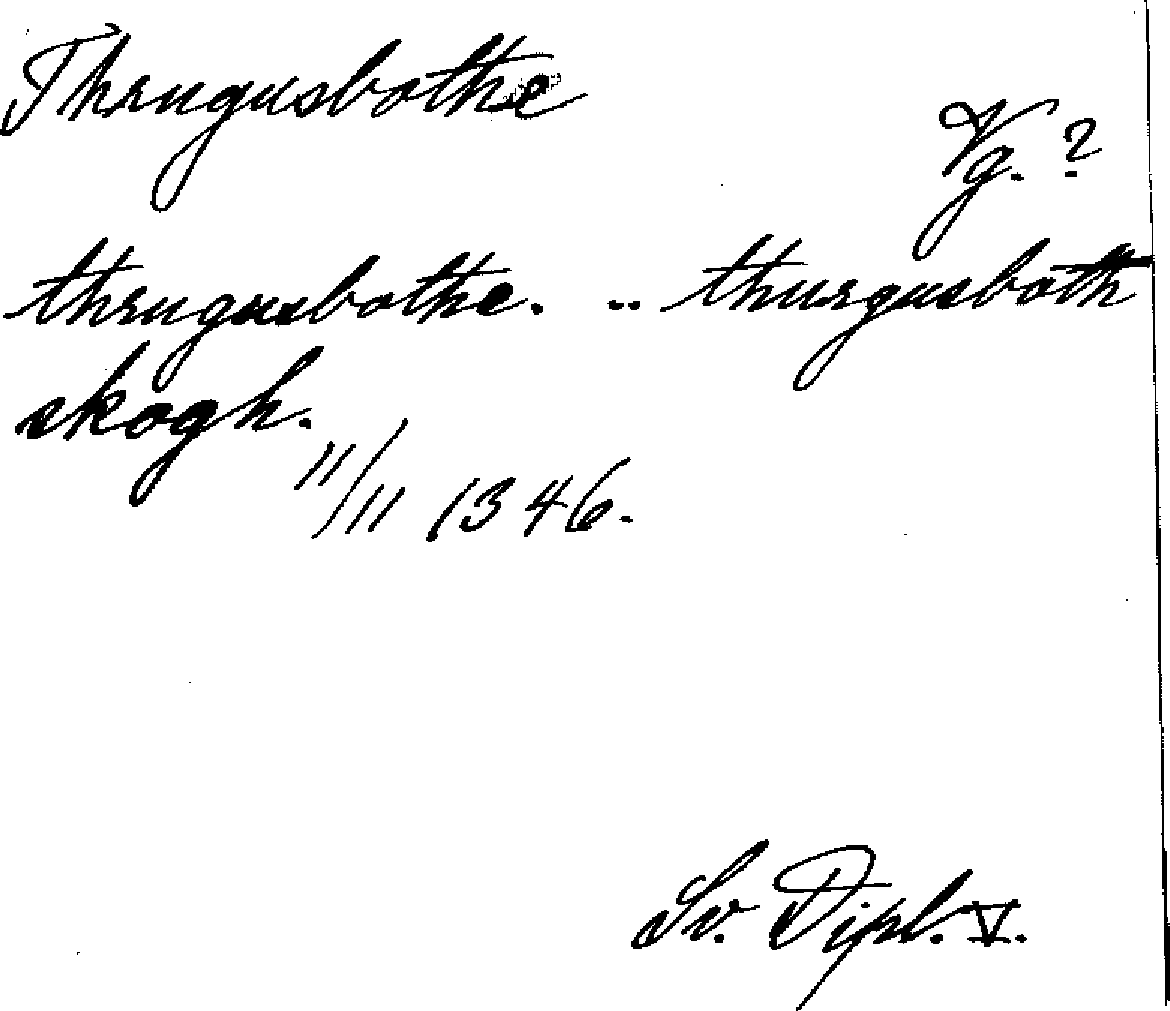 Thrugusbothe
Vg. ?
thrugusbothe. .. thurgusboth
skogh.
11/11 1346.
Sv. Dipl. V.